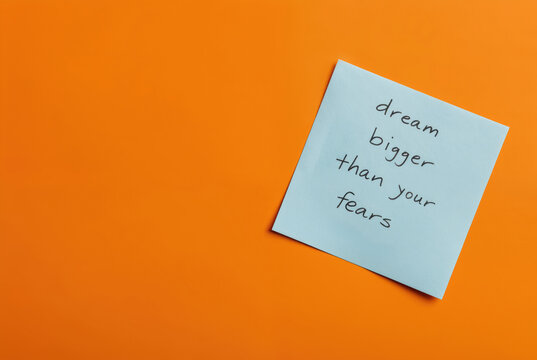 dream
bigger
than your
fears